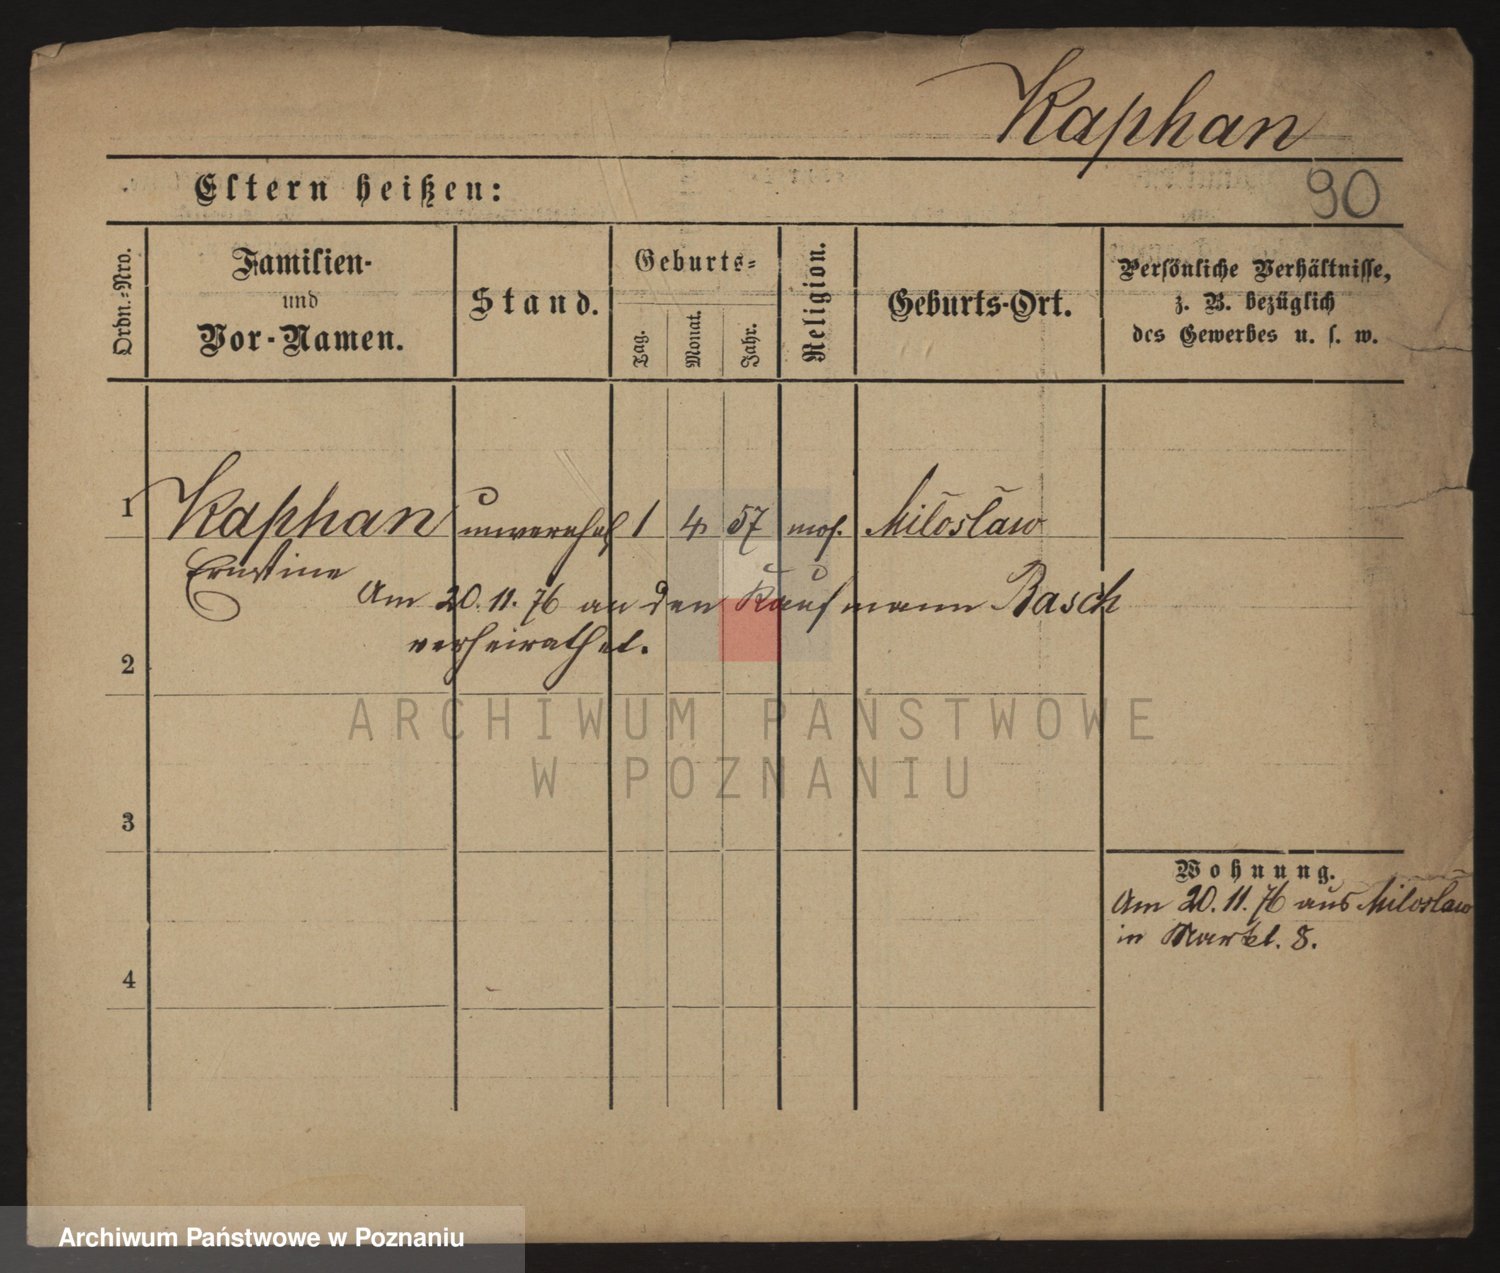 Kaphan
90
Eltern heißen:
Ordn.-Nro.
Familien-
und
Vor-Namen.
Stand.
Geburts-
Tag.
Monat.
Jahr.
Religion.
Geburts-Ort.
Persönliche Verhältnisse,
z. B. bezüglich
des Gewerbes u. s. w.
1 Kaphan unverehel 1 4 57 mos. Miloslaw
Ernstine
Am 20. 11. 76 an den Kaufmann Basch
verheirathet.
2
3
4
Wohnung.
Am 20. 11. 76 aus Miloslaw
in Markt. 8.
ARCHIWUM PAŃSTWOWE
W POZNANIU
Archiwum Państwowe w Poznaniu